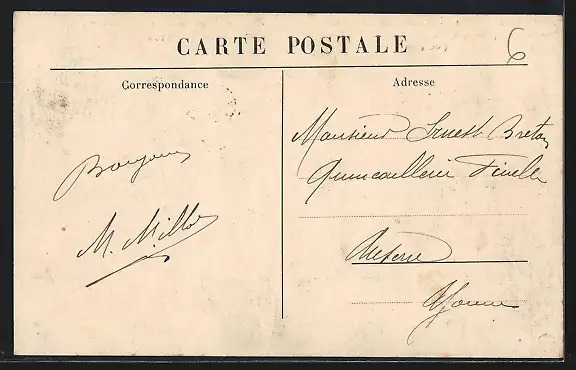 CARTE POSTALE
6
Correspondance
Adresse
Monsieur Ernest Breton
Quincaillerie
Bonjour
M. Millot
Auxerre
Yonne